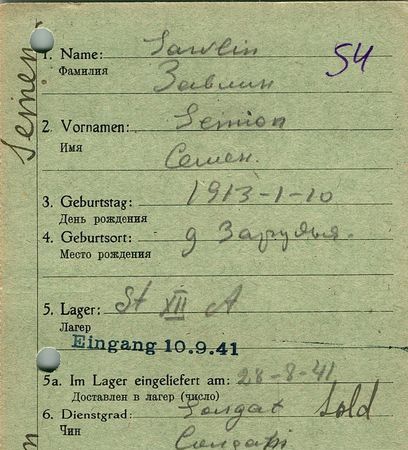 54
Semen
1. Name: Sawlin
Фамилия Завлин
2. Vornamen: Semion
Имя Семен.
3. Geburtstag: 1913-1-10
День рождения
4. Geburtsort: д Зарудья.
Место рождения
5. Lager: St XII A
Лагер
Eingang 10.9.41
5a. Im Lager eingeliefert am: 28-8-41
Доставлен в лагер (число)
6. Dienstgrad: Soldat Sold
Чин Солдат